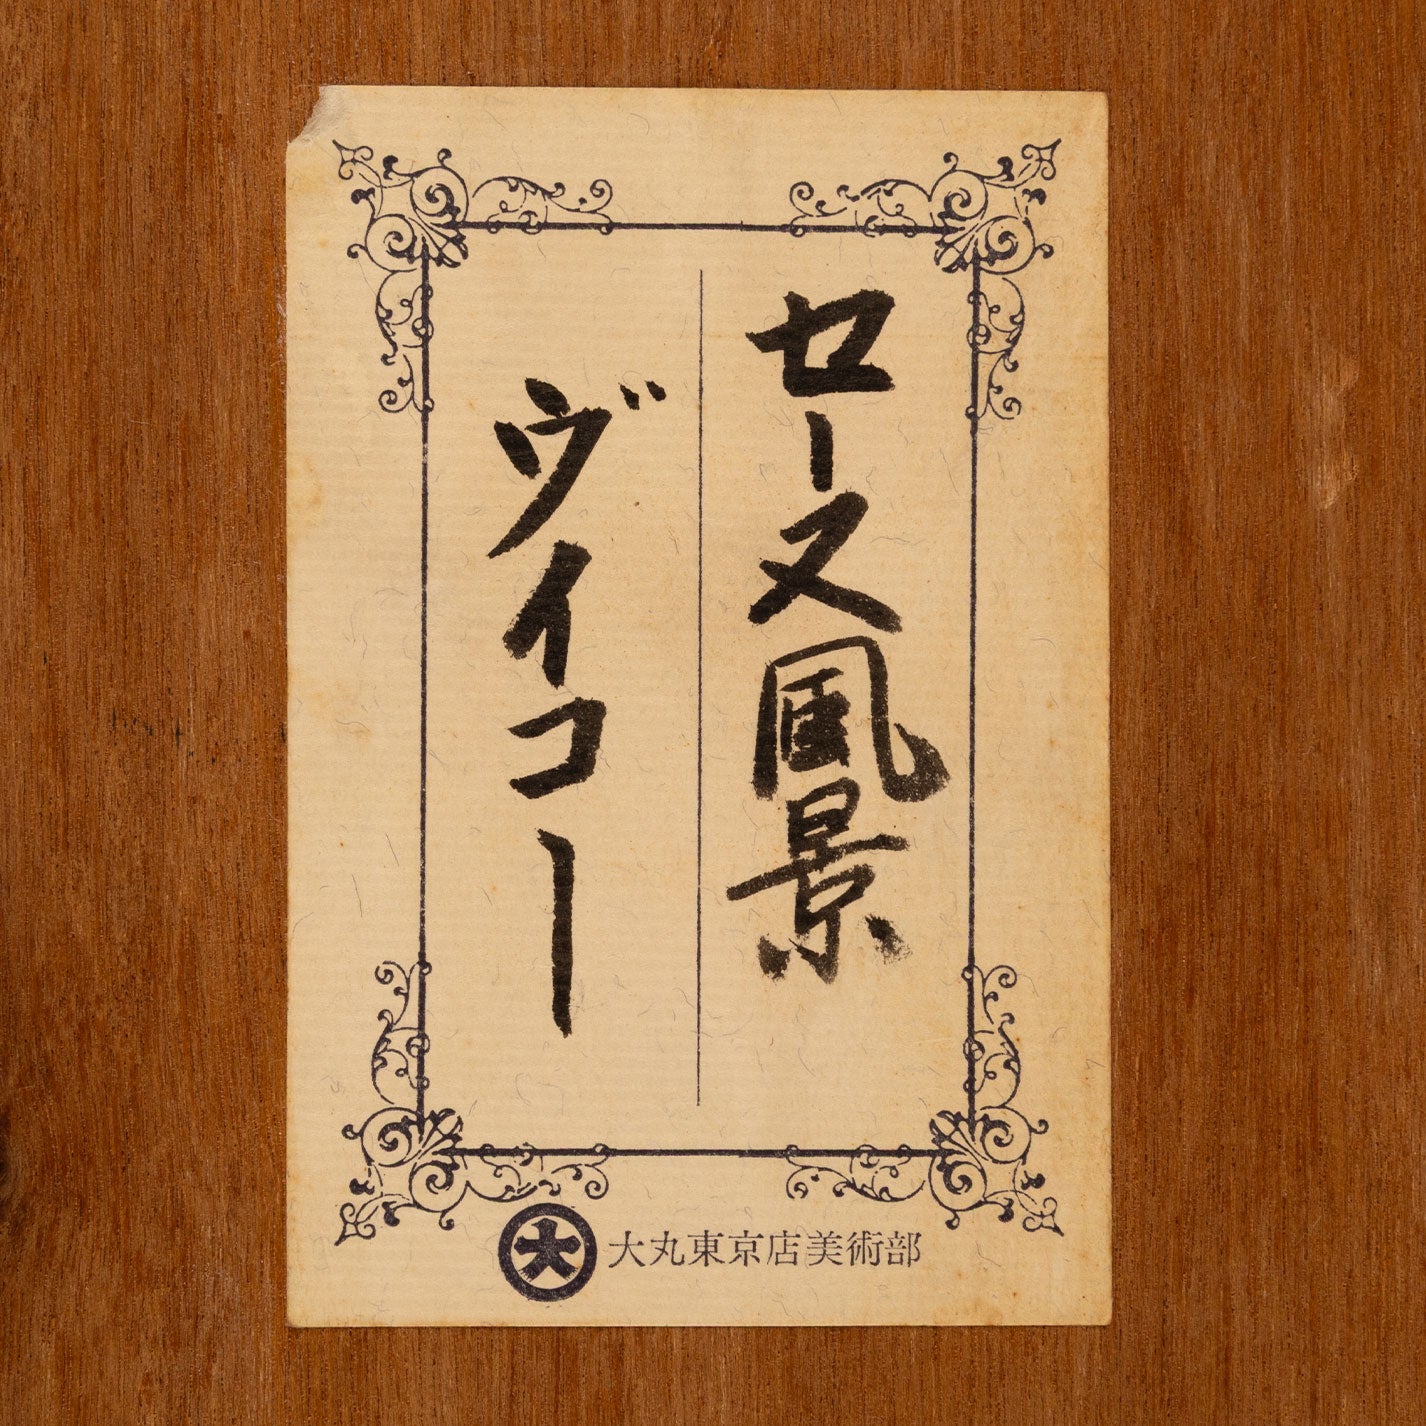 セーヌ風景
ヴイコー
大 大丸東京店美術部